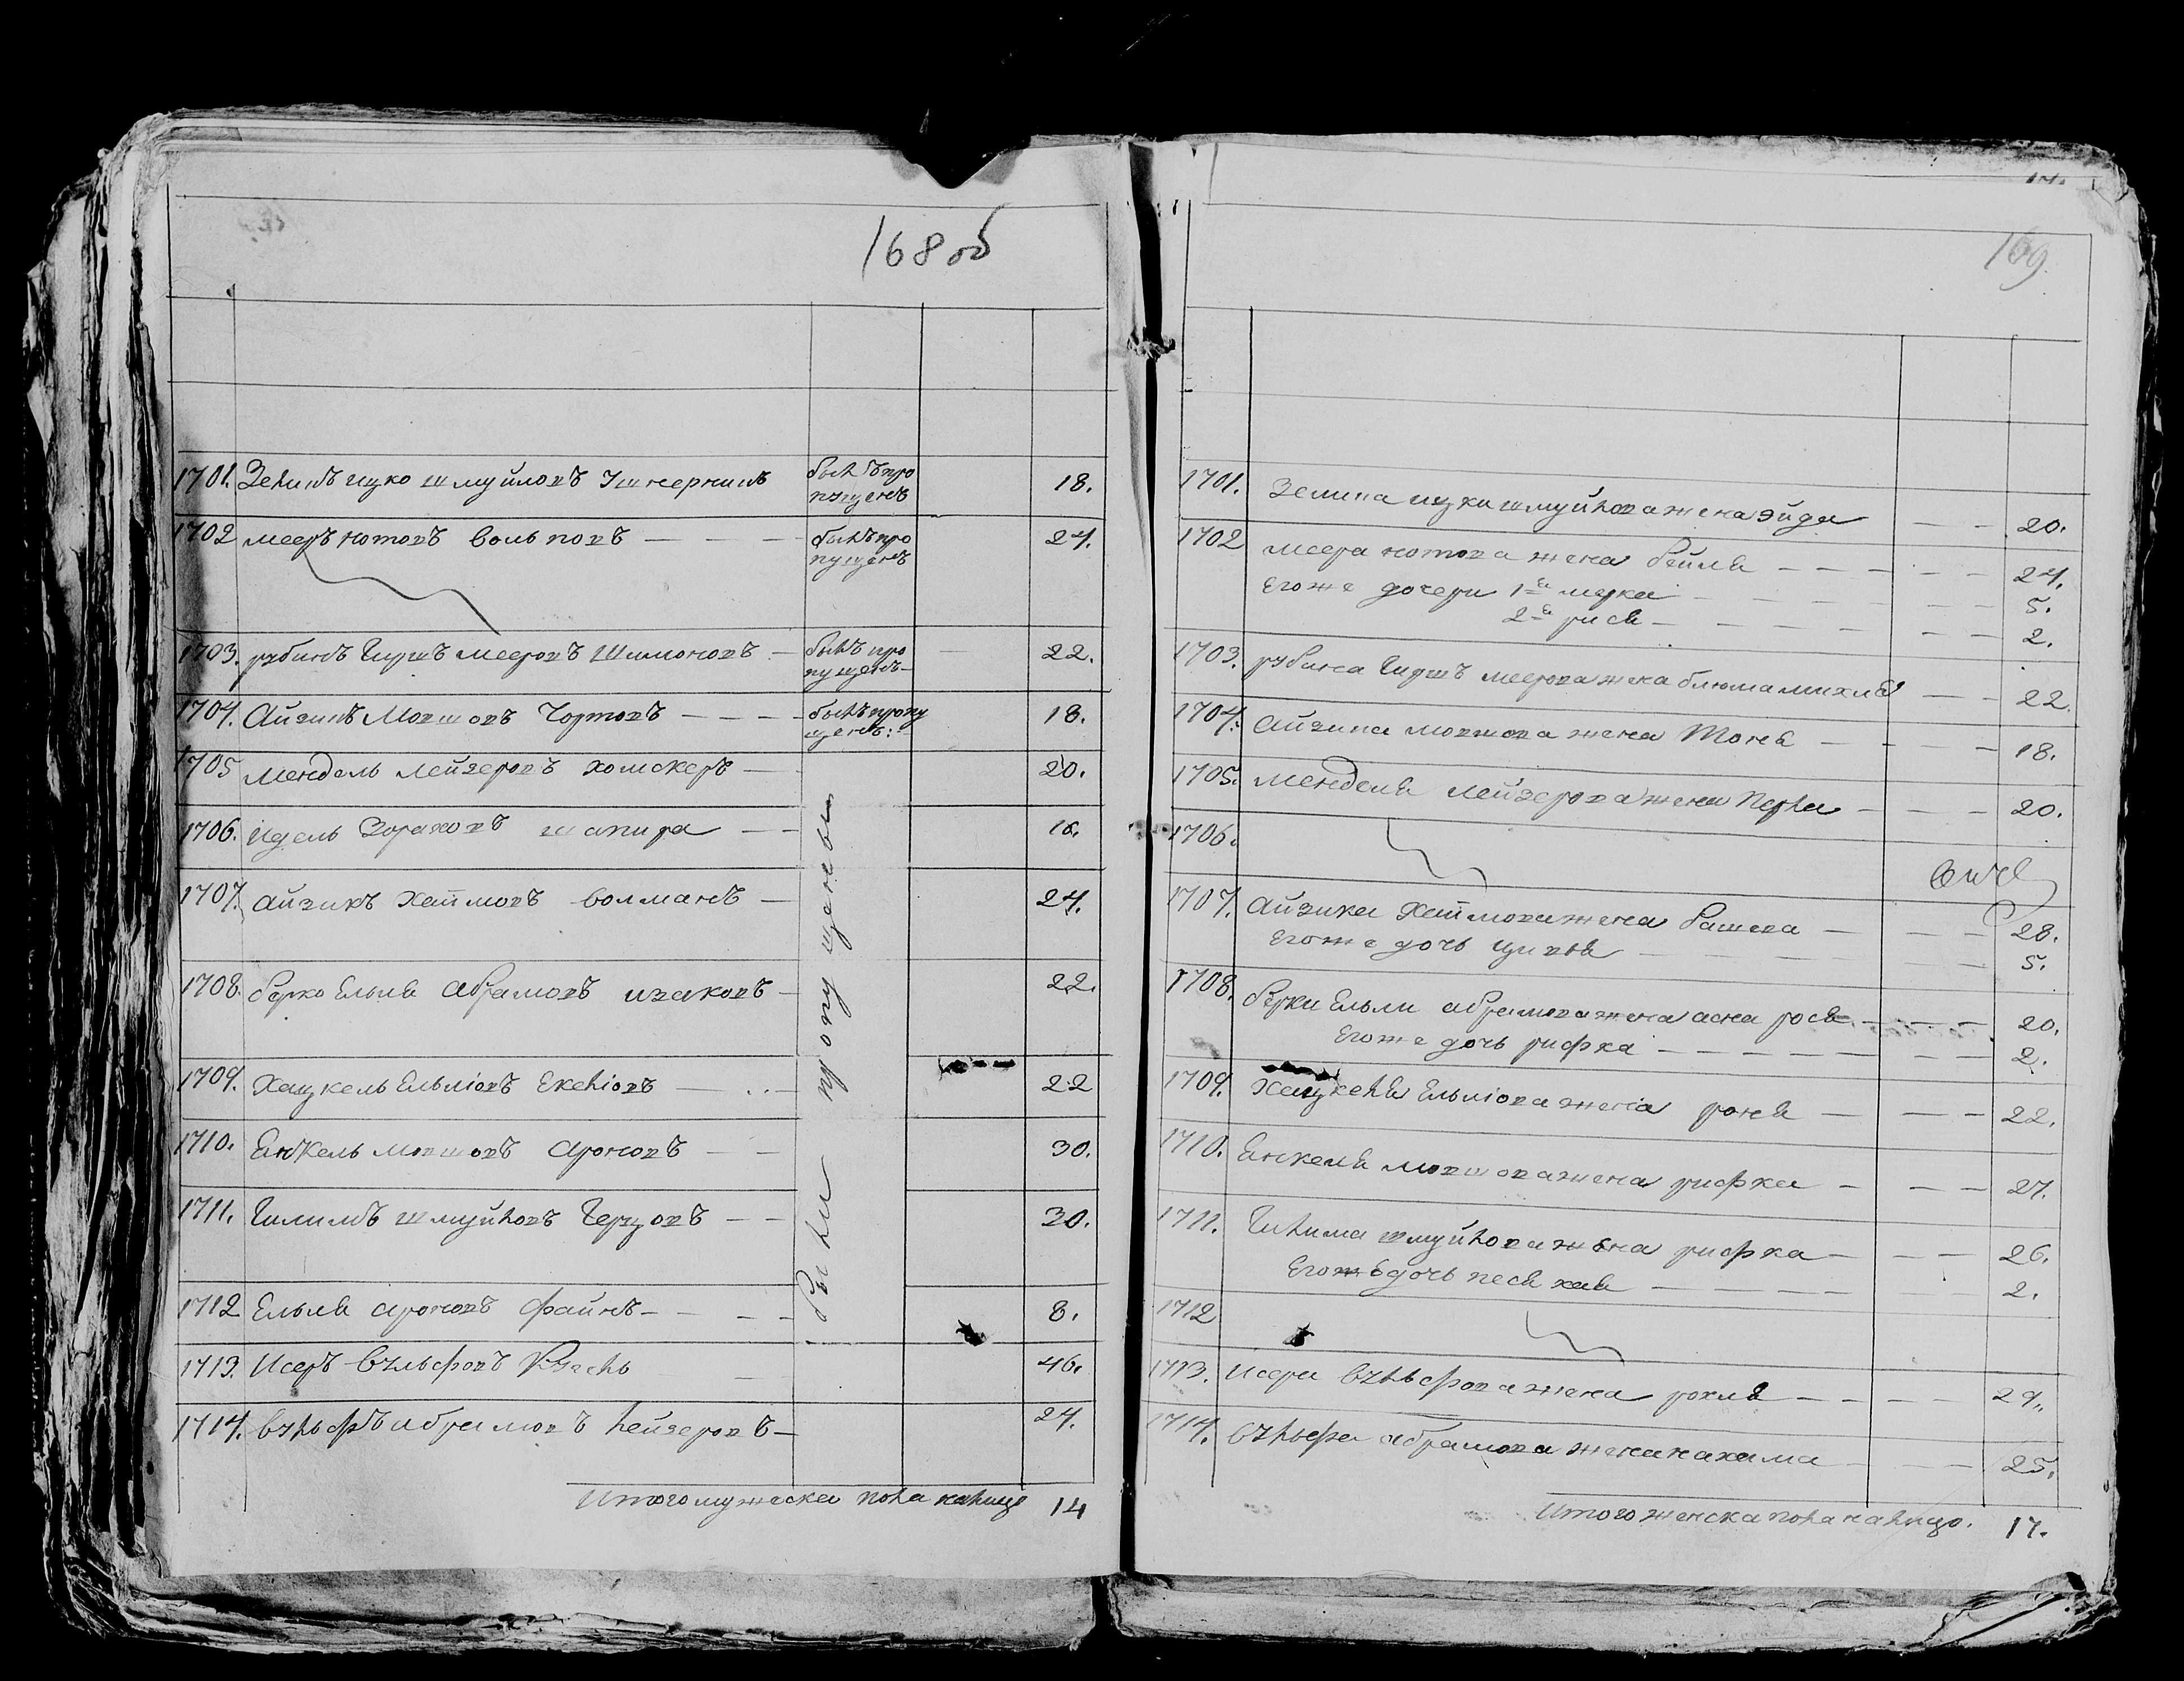 168 об
1701. Зелинъ ицко шмуйловъ былъ про 18.
пущенъ
1702 мееръ нотовъ вольповъ — — — былъ про 24.
пущенъ
1703. рубинъ Гиршъ мееровъ Шимоновъ — былъ про 22.
пущенъ —
1704. Айзинъ Мовшовъ Чортовъ — — — былъ пропу 18.
щенъ:
1705 Мендель лейзеровъ хомскеръ — 20.
1706. Идель шапира — — 18.
1707. Айзикъ Хаймовъ волманъ — 24.
1708. берко Ельля Абрамовъ исаковъ — 22.
1709. Хацкель Ельліовъ Екеліовъ — 22
1710. Янкель мовшовъ Ароновъ — — 30.
1711. Гилимъ шмуйловъ Герцовъ — — 30.
1712 Ельля Ароновъ файнъ — — — 8.
1713. Исеръ вульфовъ 46.
1714. вульфъ абрамовъ лейзеровъ — 24.
были пропущены
Итого мужеска пола налицо 14
169.
1701. Зелина ицки шмуйлова жена эйдя — — 20.
1702 меера нотова жена бейля — — — — — 24.
Его же дочери 1я мерка — — — — 5.
2я рися — — — — — — 2.
1703. рубина Гиршъ меерова жена блюма михля — — 22.
1704. Айзина мовшова жена Моня — — — — 18.
1705. Менделя лейзерова жена перла — — — 20.
1706.
1707. Айзика Хаймова жена башева — — — 28.
Его же дочь — — — — 5.
1708. берки Ельли абрамова жена асна рося — — — 20.
Его же дочь рифка — — — — — — 2.
1709. Хацкеля Ельліова жена роня — — — 22.
1710. Янкеля мовшова жена рифка — — — 27.
1711. Гилима шмуйлова жена рифка — — — 26.
Его же дочь песя хая — — — — 2.
1712
1713. Исера вульфова жена рохля — — — — 29.
1714. вульфа абрамова жена нахама — — — 25.
Итого женска пола налицо. 17.